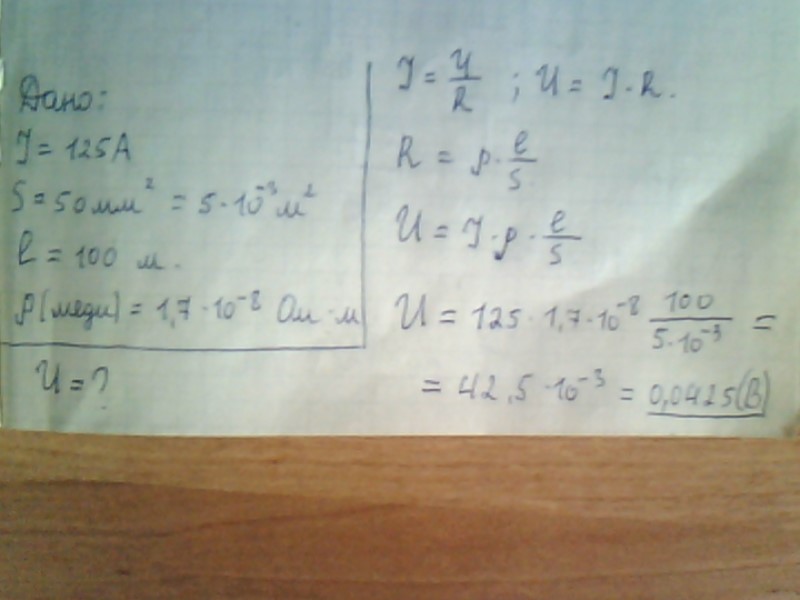 Дано:
I = 125А
S = 50 мм² = 5·10⁻³ м²
l = 100 м.
ρ(меди) = 1,7·10⁻⁸ Ом·м
U = ?
I = U/R ; U = I·R.
R = ρ·l/S
U = I·ρ·l/S
U = 125·1,7·10⁻⁸ 100/5·10⁻³ =
= 42,5·10⁻³ = 0,0425(В)